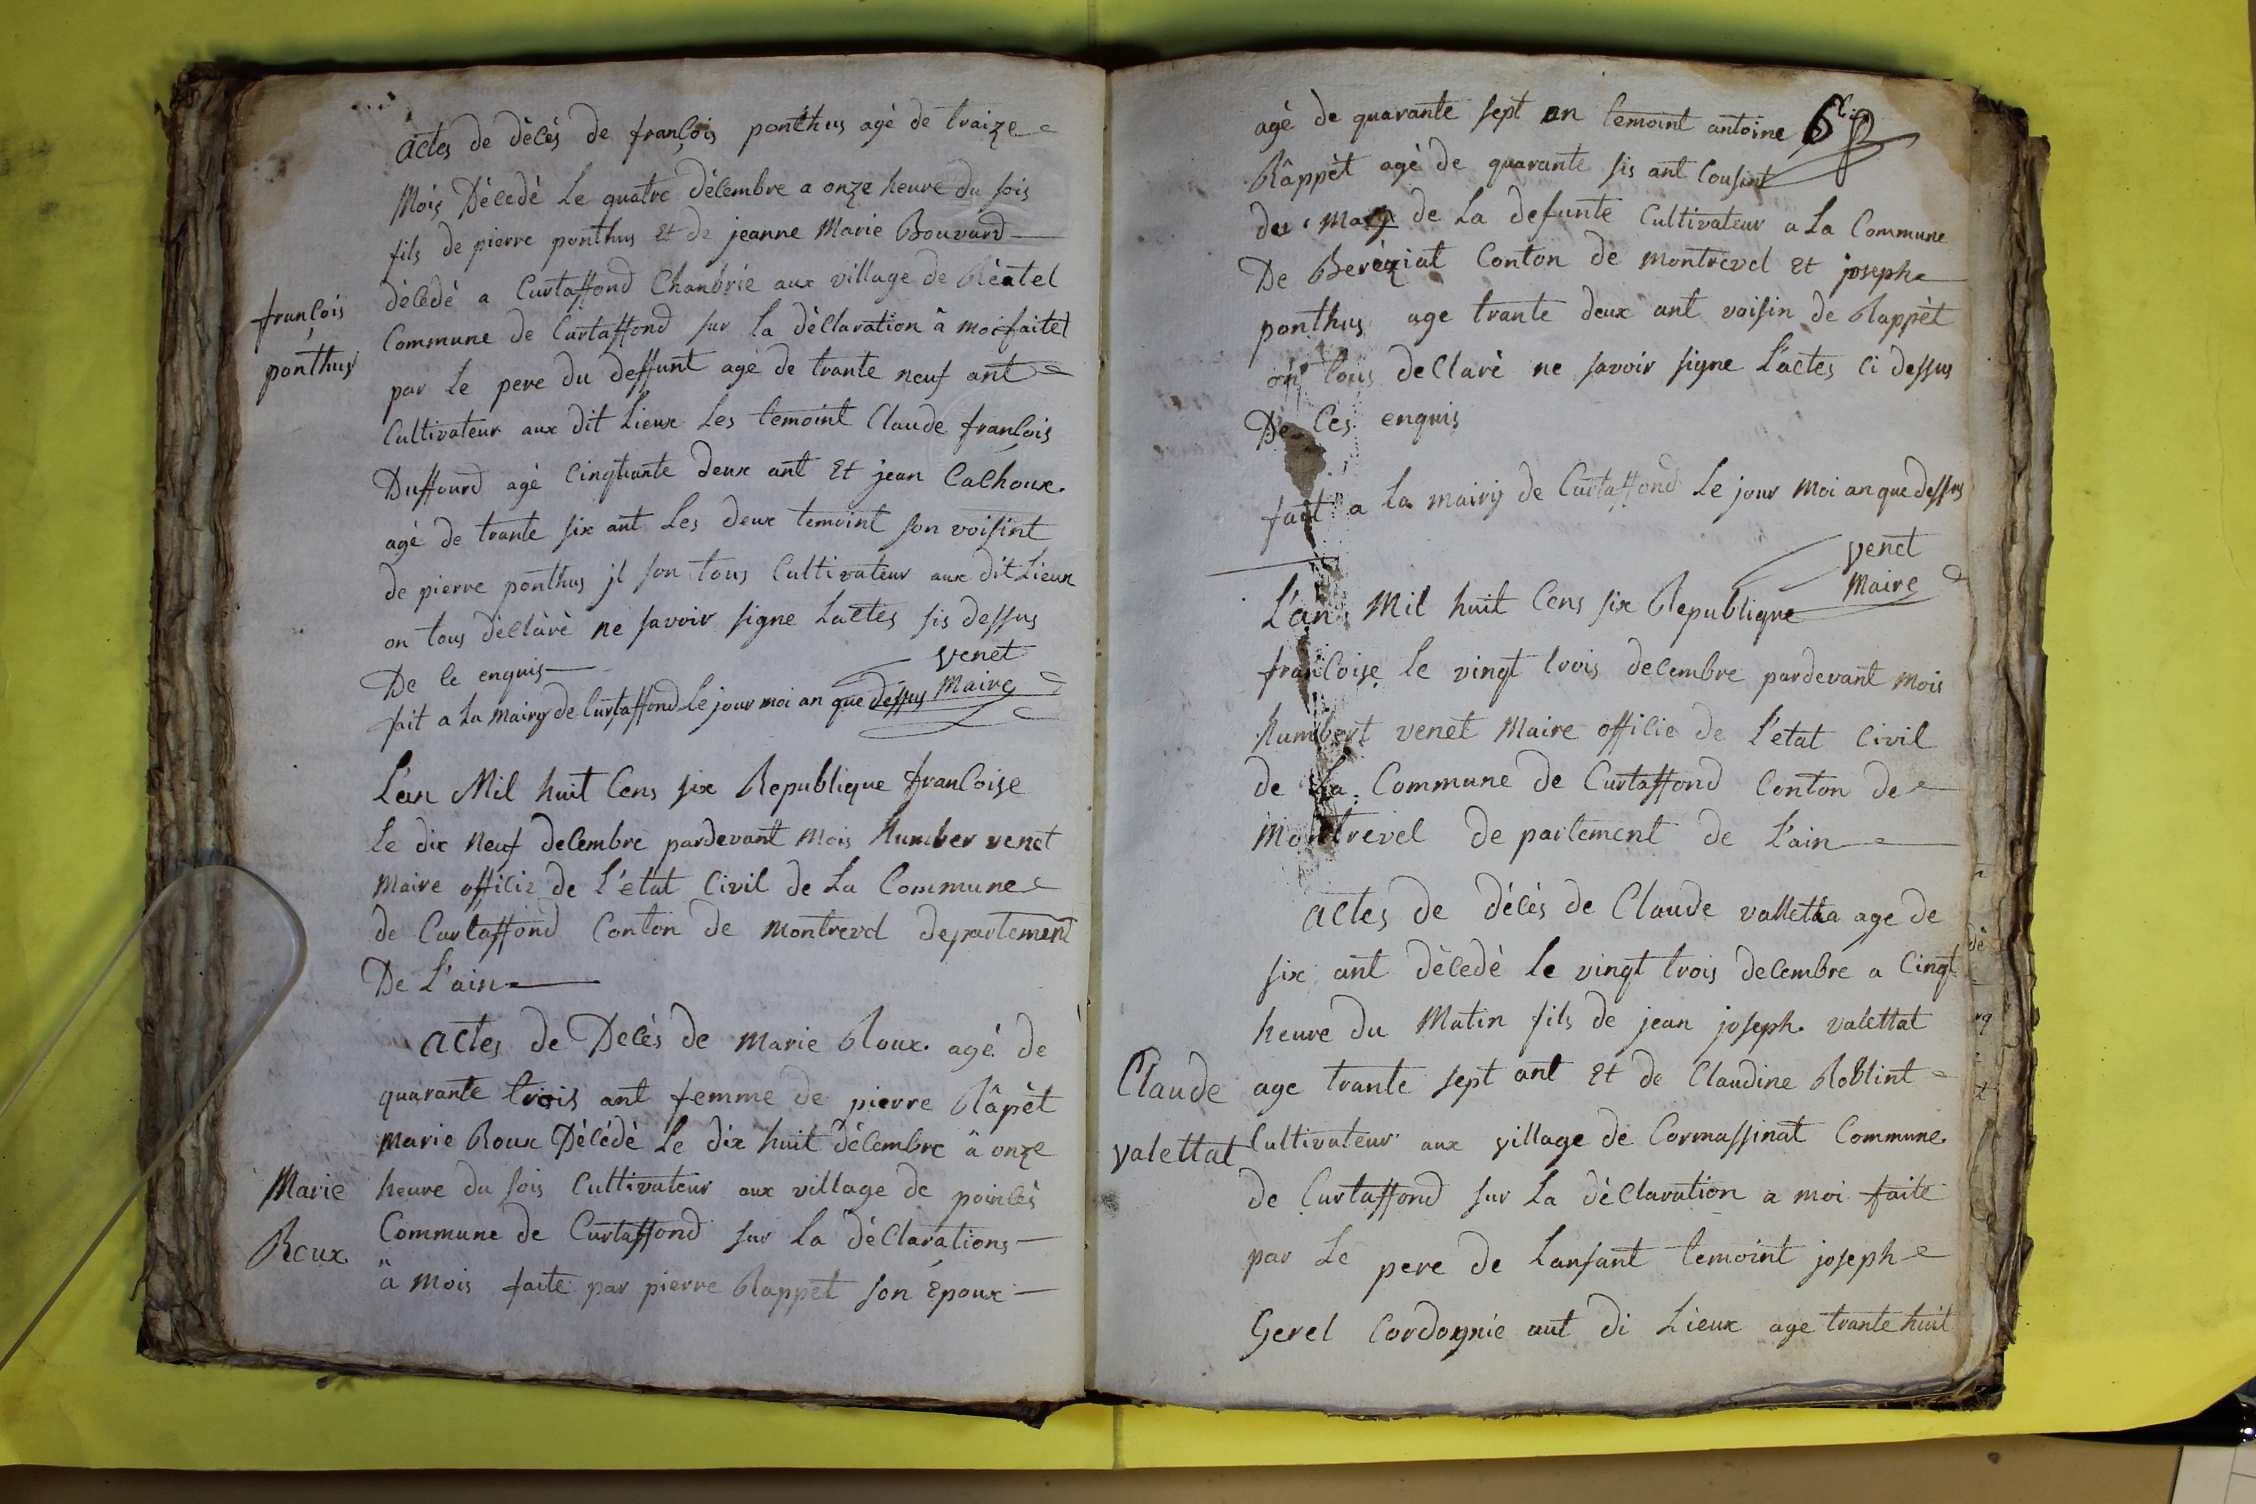 actes de dècès de françois ponthus agè de traize
Mois Dècedè Le quatre dècembre a onze heure du sois
fils de pierre ponthus Et de jeanne Marie Bouvard
dècedè a Curtaffond Chambrie aux village de
françois
ponthus
Commune de Curtaffond sur la dèClaration â moi faite
par Le pere du deffunt agè de trante neuf ant
Cultivateur aux dit Lieux Les temoint Claude françois
Duffourd agè Cinqtiante deux ant Et jean Calhoux.
agè de trante six ant Les deux temoint son voisint
de pierre ponthus jl son tous Cultivateur aux dit Lieux
on tous dèclàrè ne savoir signe Lactes sis dessus
De ce enquis
venet
Maire
fait a La Mairy de Curtaffond Le jour moi an que dessus
L'an Mil huit Cens six Republique françoise
Le dix Neuf decembre pardevant Mois Humber venet
Maire officie de L'etat Civil de La Commune
de Curtaffond Conton de Montrevel departement
De L'ain
actes de Decès de Marie Roux. agé de
quarante trois ant femme de pierre Râpèt
Marie Roux Dècédè Le dix huit dècembre â onze
Marie
Roux
heure du sois Cultivateur aux village de poincès
Commune de Curtaffond sur La dèClarations
â Mois faite par pierre Rappet son Epoux
agè de quarante sept an temoint antoine
Râppèt agè de quarante sis ant Cousint
du Mary de La defunte Cultivateur a La Commune
De Berèziat Conton de montrevel Et joseph
ponthus age trante deux ant voisin de Rappèt
on tous deClarè ne savoir signe L'actes Ci dessus
De Ces enquis
fait a La mairy de Curtaffond Le jour Moi an que dessus
venet
Maire
L'an Mil huit Cens six Republique
françoise Le vingt trois decembre pardevant Mois
Humbert venet Maire officie de L'etat Civil
de La Commune de Curtaffond Conton de
Montrevel de partement de L'ain
actes de dècès de Claude vallettea age de
six ant dècedè Le vingt trois decembre a Cinqt
heure du Matin fils de jean joseph. valettat
Claude
valettat
age trante sept ant Et de Claudine Roblint
Cultivateur aux village de Cormassinat Commune
de Curtaffond sur La dèClaration a moi faite
par Le pere de Lanfant temoint joseph
Gerel Cordognie aut di Lieux age trante huit